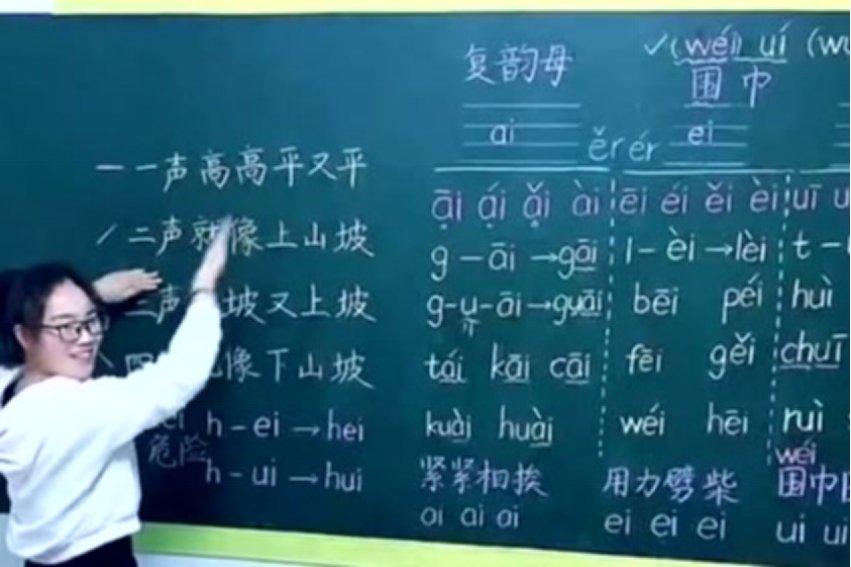 复韵母 ✓(wéi) uí
围巾
ai ěr ér ei
一 一声高高平又平
āi ái ǎi ài ēi éi ěi èi uī
ˊ 二声就像上山坡
g - āi → gāi l - èi → lèi t -
三声 坡又上坡
g - u - āi → guāi bēi péi huì
ˋ 四 像下山坡
tái kāi cāi fēi gěi chuī
h - ei → hei
kuài huài wéi hēi ruì
危险
h - ui → hui
紧紧相挨 用力劈柴 wéi 围巾
ai ai ai ei ei ei ui ui